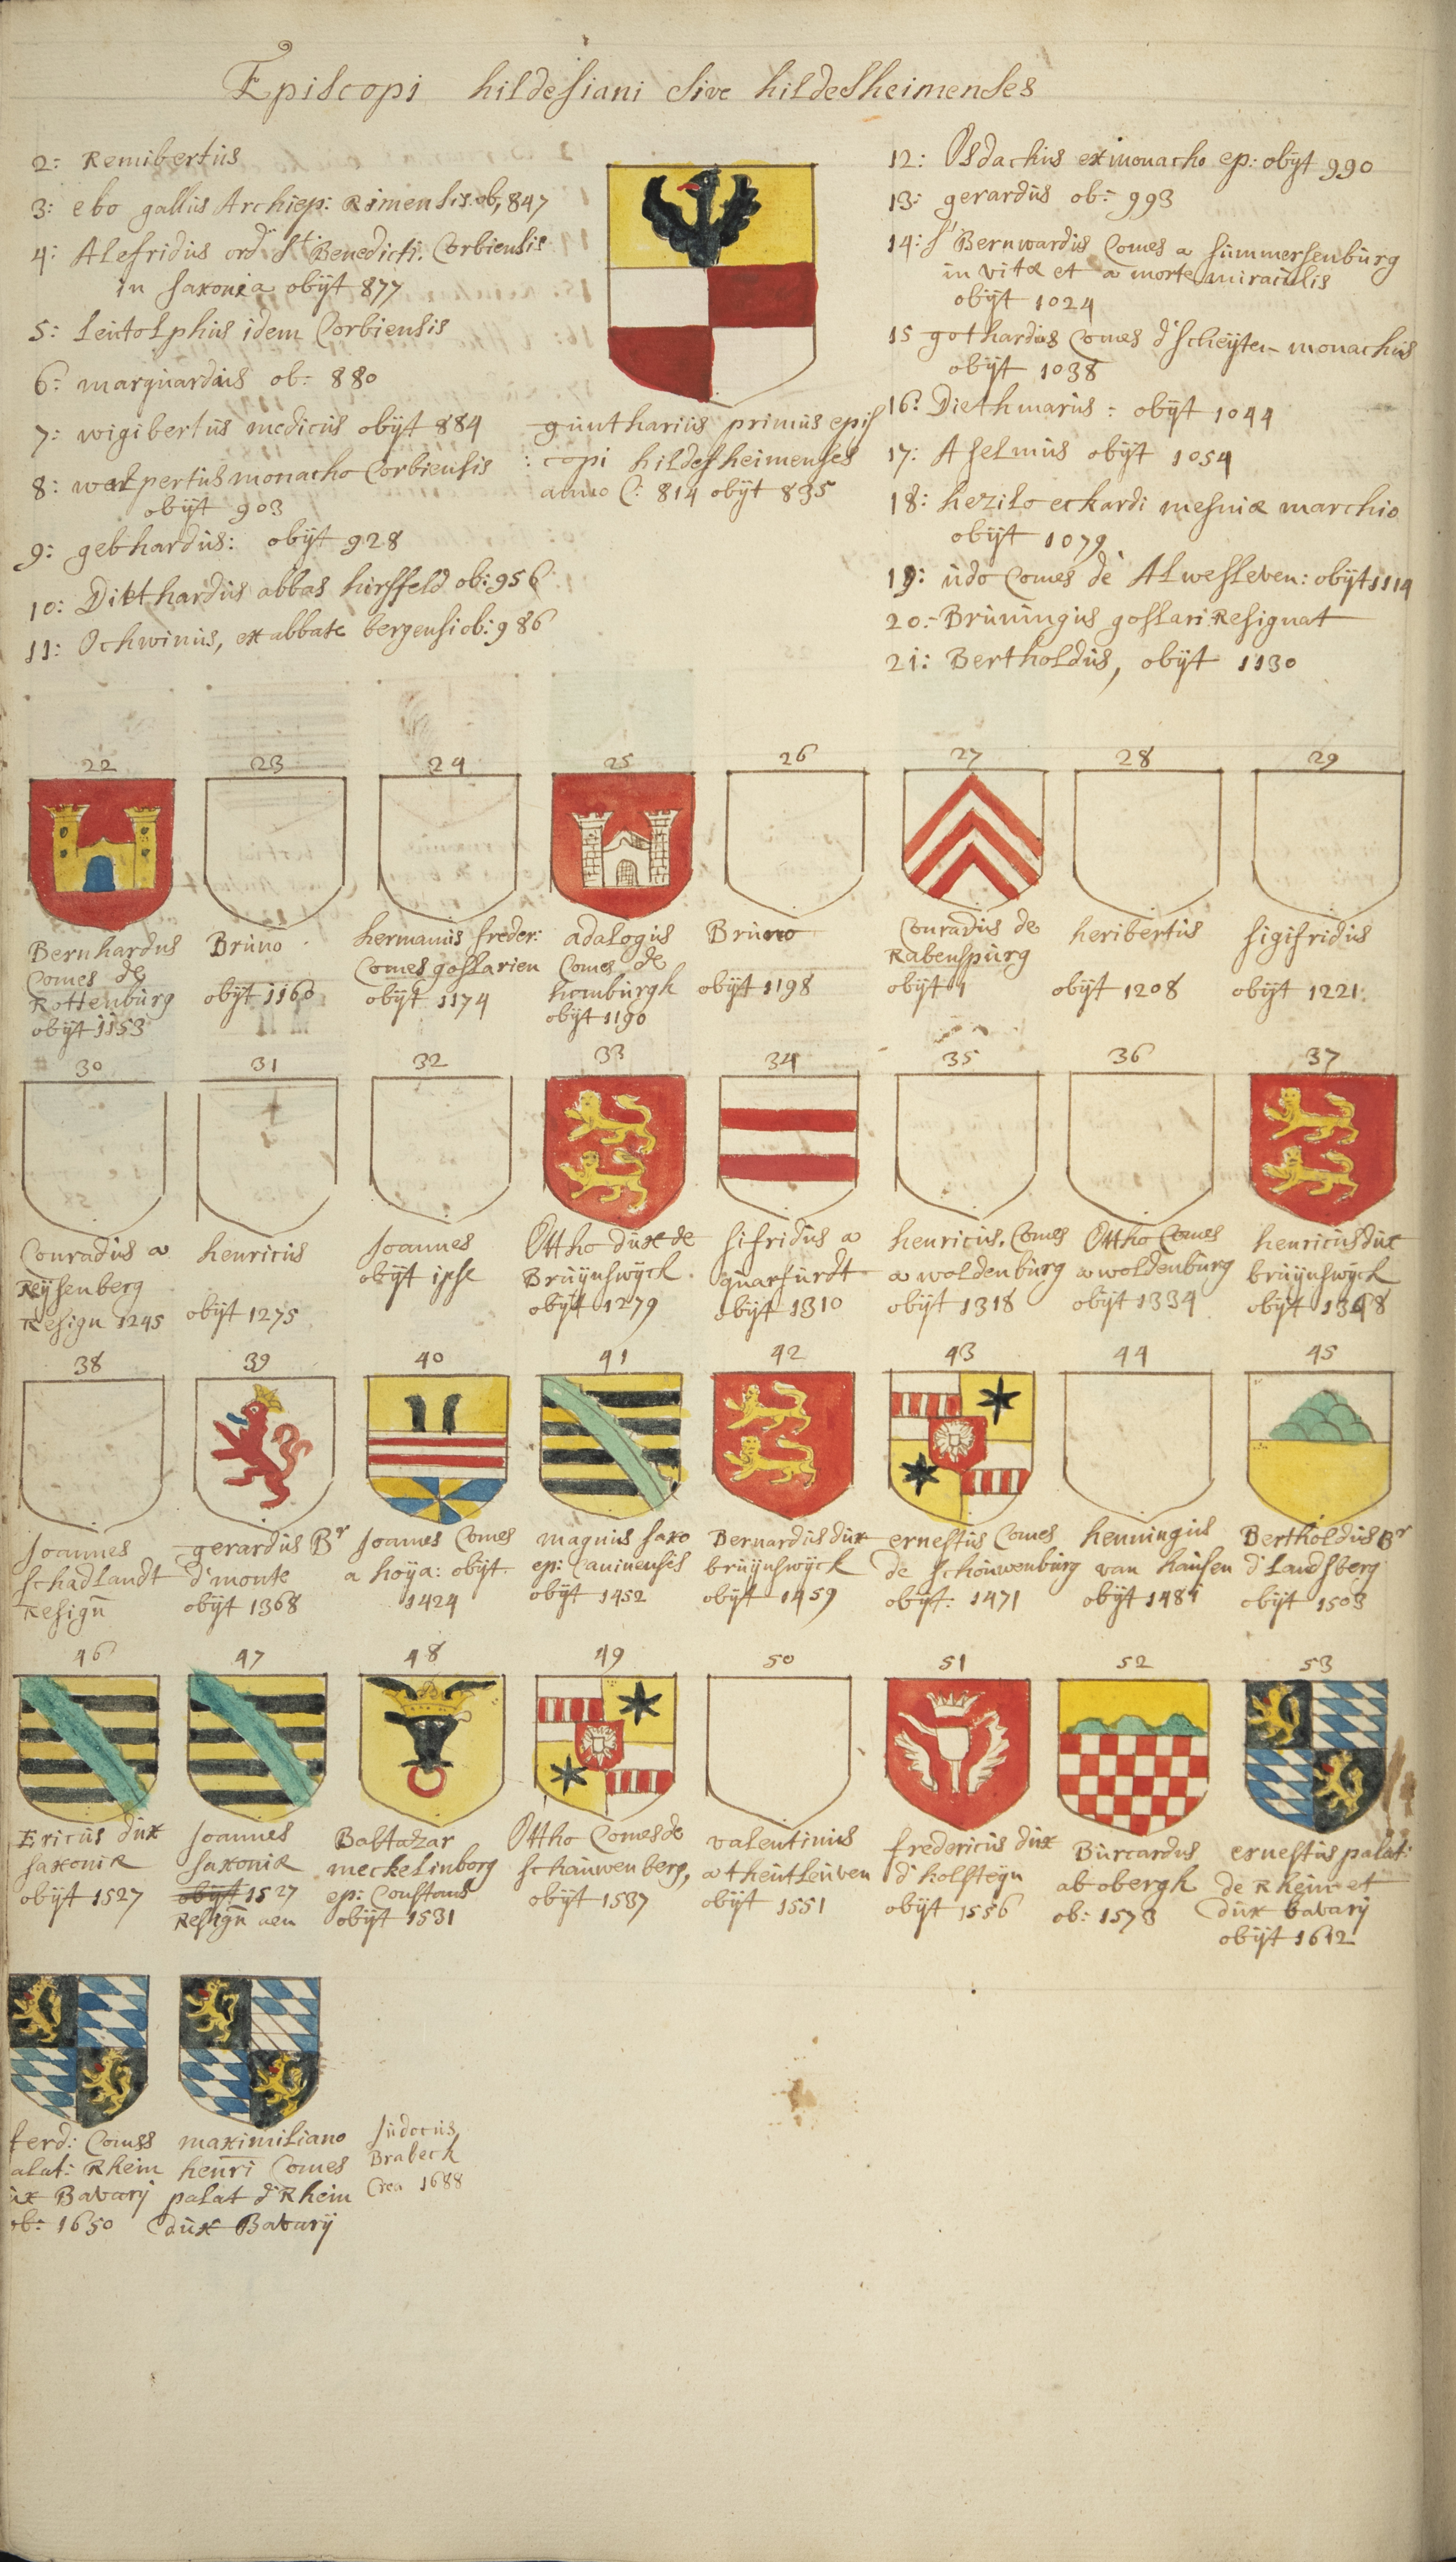 Episcopi hildesiani sive hildesheimenses
2: Remibertus
3: ebo gallus Archiep: Rimensis ob, 847
4: Alefridus ord St Benedicti. Corbiensis
in saxonia obijt 877
5: Leutolphus idem Corbiensis
6: marquardus ob: 880
7: wigibertus medicus obijt 884
8: walpertus monacho Corbiensis
obijt 903
9: gebhardus: obijt 928
10: Ditthardus abbas hirsfeld ob: 956
11: Ochwinus, ex abbate bergensi ob: 986
guntharius primus epis
: copi hildesheimenses
anno C: 814 obijt 835
12: Osdachus ex monacho ep: obijt 990
13: gerardus ob: 993
14: St Bernwardus Comes a summersenburg
in vita et a morte miraculis
obijt 1024
15 gothardus Comes d'scheyten monachus
obijt 1038
16: Diethmarus: obijt 1044
17: Aselmus obijt 1054
18: hezilo eckardi mesniæ marchio
obijt 1079
19: udo Comes de Alwesleven: obijt 1114
20: Bruningus goslari Resignat
21: Bertholdus, obijt 1130
22 23 24 25 26 27 28 29
Bernhardus
Comes de
Rottenburg
obijt 1153
Bruno
obijt 1160
hermanus freder:
Comes goslarien
obijt 1174
adalogus
Comes de
homburgh
obijt 1190
Bruno
obijt 1198
Conradus de
Rabenspurg
obijt 1
heribertus
obijt 1208
sigifridus
obijt 1221
30 31 32 33 34 35 36 37
Conradus a
Reysenberg
Resign 1245
henricus
obijt 1275
Joannes
obijt ipse
Ottho dux de
Bruynswyck
obijt 1279
sifridus a
quarfurdt
obijt 1310
henricus. Comes
a woldenburg
obijt 1318
Ottho Comes
a woldenburg
obijt 1334
henricus dux
bruynswyck
obijt 1368
38 39 40 41 42 43 44 45
Joannes
schadlandt
Resign
gerardus Br
d'monte
obijt 1368
Joannes Comes
a hoya: obijt
1424
magnus saxo
ep: Caminensis
obijt 1452
Bernardus dux
bruynswyck
obijt 1459
ernestus Comes
de schouwenburg
obijt: 1471
henningus
van hausen
obijt 1481
Bertholdus Br
d'Landsberg
obijt 1503
46 47 48 49 50 51 52 53
Ericus dux
saxoniæ
obijt 1527
Joannes
saxoniæ
obijt 1527
Resign
Baltazar
meckelinborg
ep: Constans
obijt 1531
Ottho Comes de
schauwenberg,
obijt 1537
valentinus
a theutleuven
obijt 1551
fredericus dux
d'holsteyn
obijt 1556
Burcardus
ab obergh
ob: 1573
ernestus palat:
de Rhein et
dux bavarij
obijt 1612
ferd: Comes
alat: Rhein
ux Bavarij
ob: 1650
maximiliano
henri Comes
palat d'Rhein
dux Bavarij
Judocus
Brabeck
Crea 1688